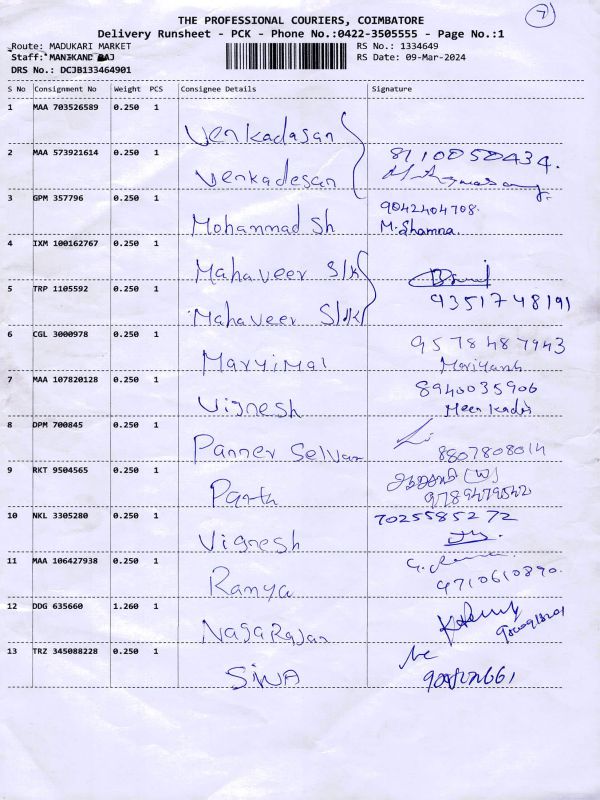 7
THE PROFESSIONAL COURIERS, COIMBATORE
Delivery Runsheet - PCK - Phone No.:0422-3505555 - Page No.:1
Route: MADUKARI MARKET RS No.: 1334649
Staff: MANIKAND RAJ RS Date: 09-Mar-2024
DRS No.: DCJB133464901
S No Consignment No Weight PCS Consignee Details Signature
1 MAA 703526589 0.250 1 Venkadasan
2 MAA 573921614 0.250 1 Venkadesan 8110050434.
3 GPM 357796 0.250 1 Mohammad Sh 9042404708.
M.Shamna.
4 IXM 100162767 0.250 1 Mahaveer S/K
5 TRP 1105592 0.250 1 Mahaveer S/K 9351748191
6 CGL 3000978 0.250 1 Maryimal 9578487943
7 MAA 107820128 0.250 1 Vignesh 8940035906
Meerkadir
8 DPM 700845 0.250 1 Panner Selvam 8807808014
9 RKT 9504565 0.250 1 Parth 9789479542
10 NKL 3305280 0.250 1 Vignesh 7025585272
11 MAA 106427938 0.250 1 Ramya 9710610890.
12 DDG 635660 1.260 1 NagaRajan
13 TRZ 345088228 0.250 1 SIVA